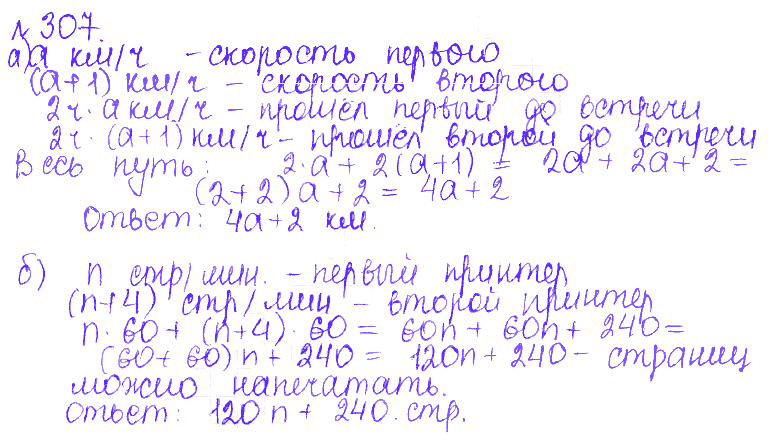 № 307.
а) a км/ч - скорость первого
(a+1) км/ч - скорость второго
2 ч · a км/ч - прошёл первый до встречи
2 ч · (a+1) км/ч - прошёл второй до встречи
Весь путь: 2·a + 2(a+1) = 2a + 2a + 2 =
(2+2)a + 2 = 4a + 2
Ответ: 4a+2 км.
б) n стр/мин. - первый принтер
(n+4) стр/мин - второй принтер
n·60 + (n+4)·60 = 60n + 60n + 240 =
(60+60)n + 240 = 120n + 240 - страниц
можно напечатать.
Ответ: 120n + 240 стр.